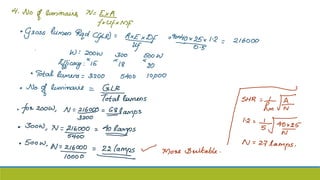 4. No of luminaire N = E×A
f×Uf×Mf
• Gross lumen Reqd (GLR) = A×E×Df = 40×25×1.2 = 216000
Uf 0.5
W: 200W 300 500W
Efficacy: 16 18 20
• Total lumens = 3200 5400 10,000
• No of luminaire = GLR
Total lumens
• for 200W, N = 216000 = 68 lamps
3200
• 300W, N = 216000 = 40 lamps
5400
• 500W, N = 216000 = 22 lamps
10000
More Suitable.
SHR = 1 √A
Hm N
1.2 = 1 √40×25
5 N
N = 27 lamps.